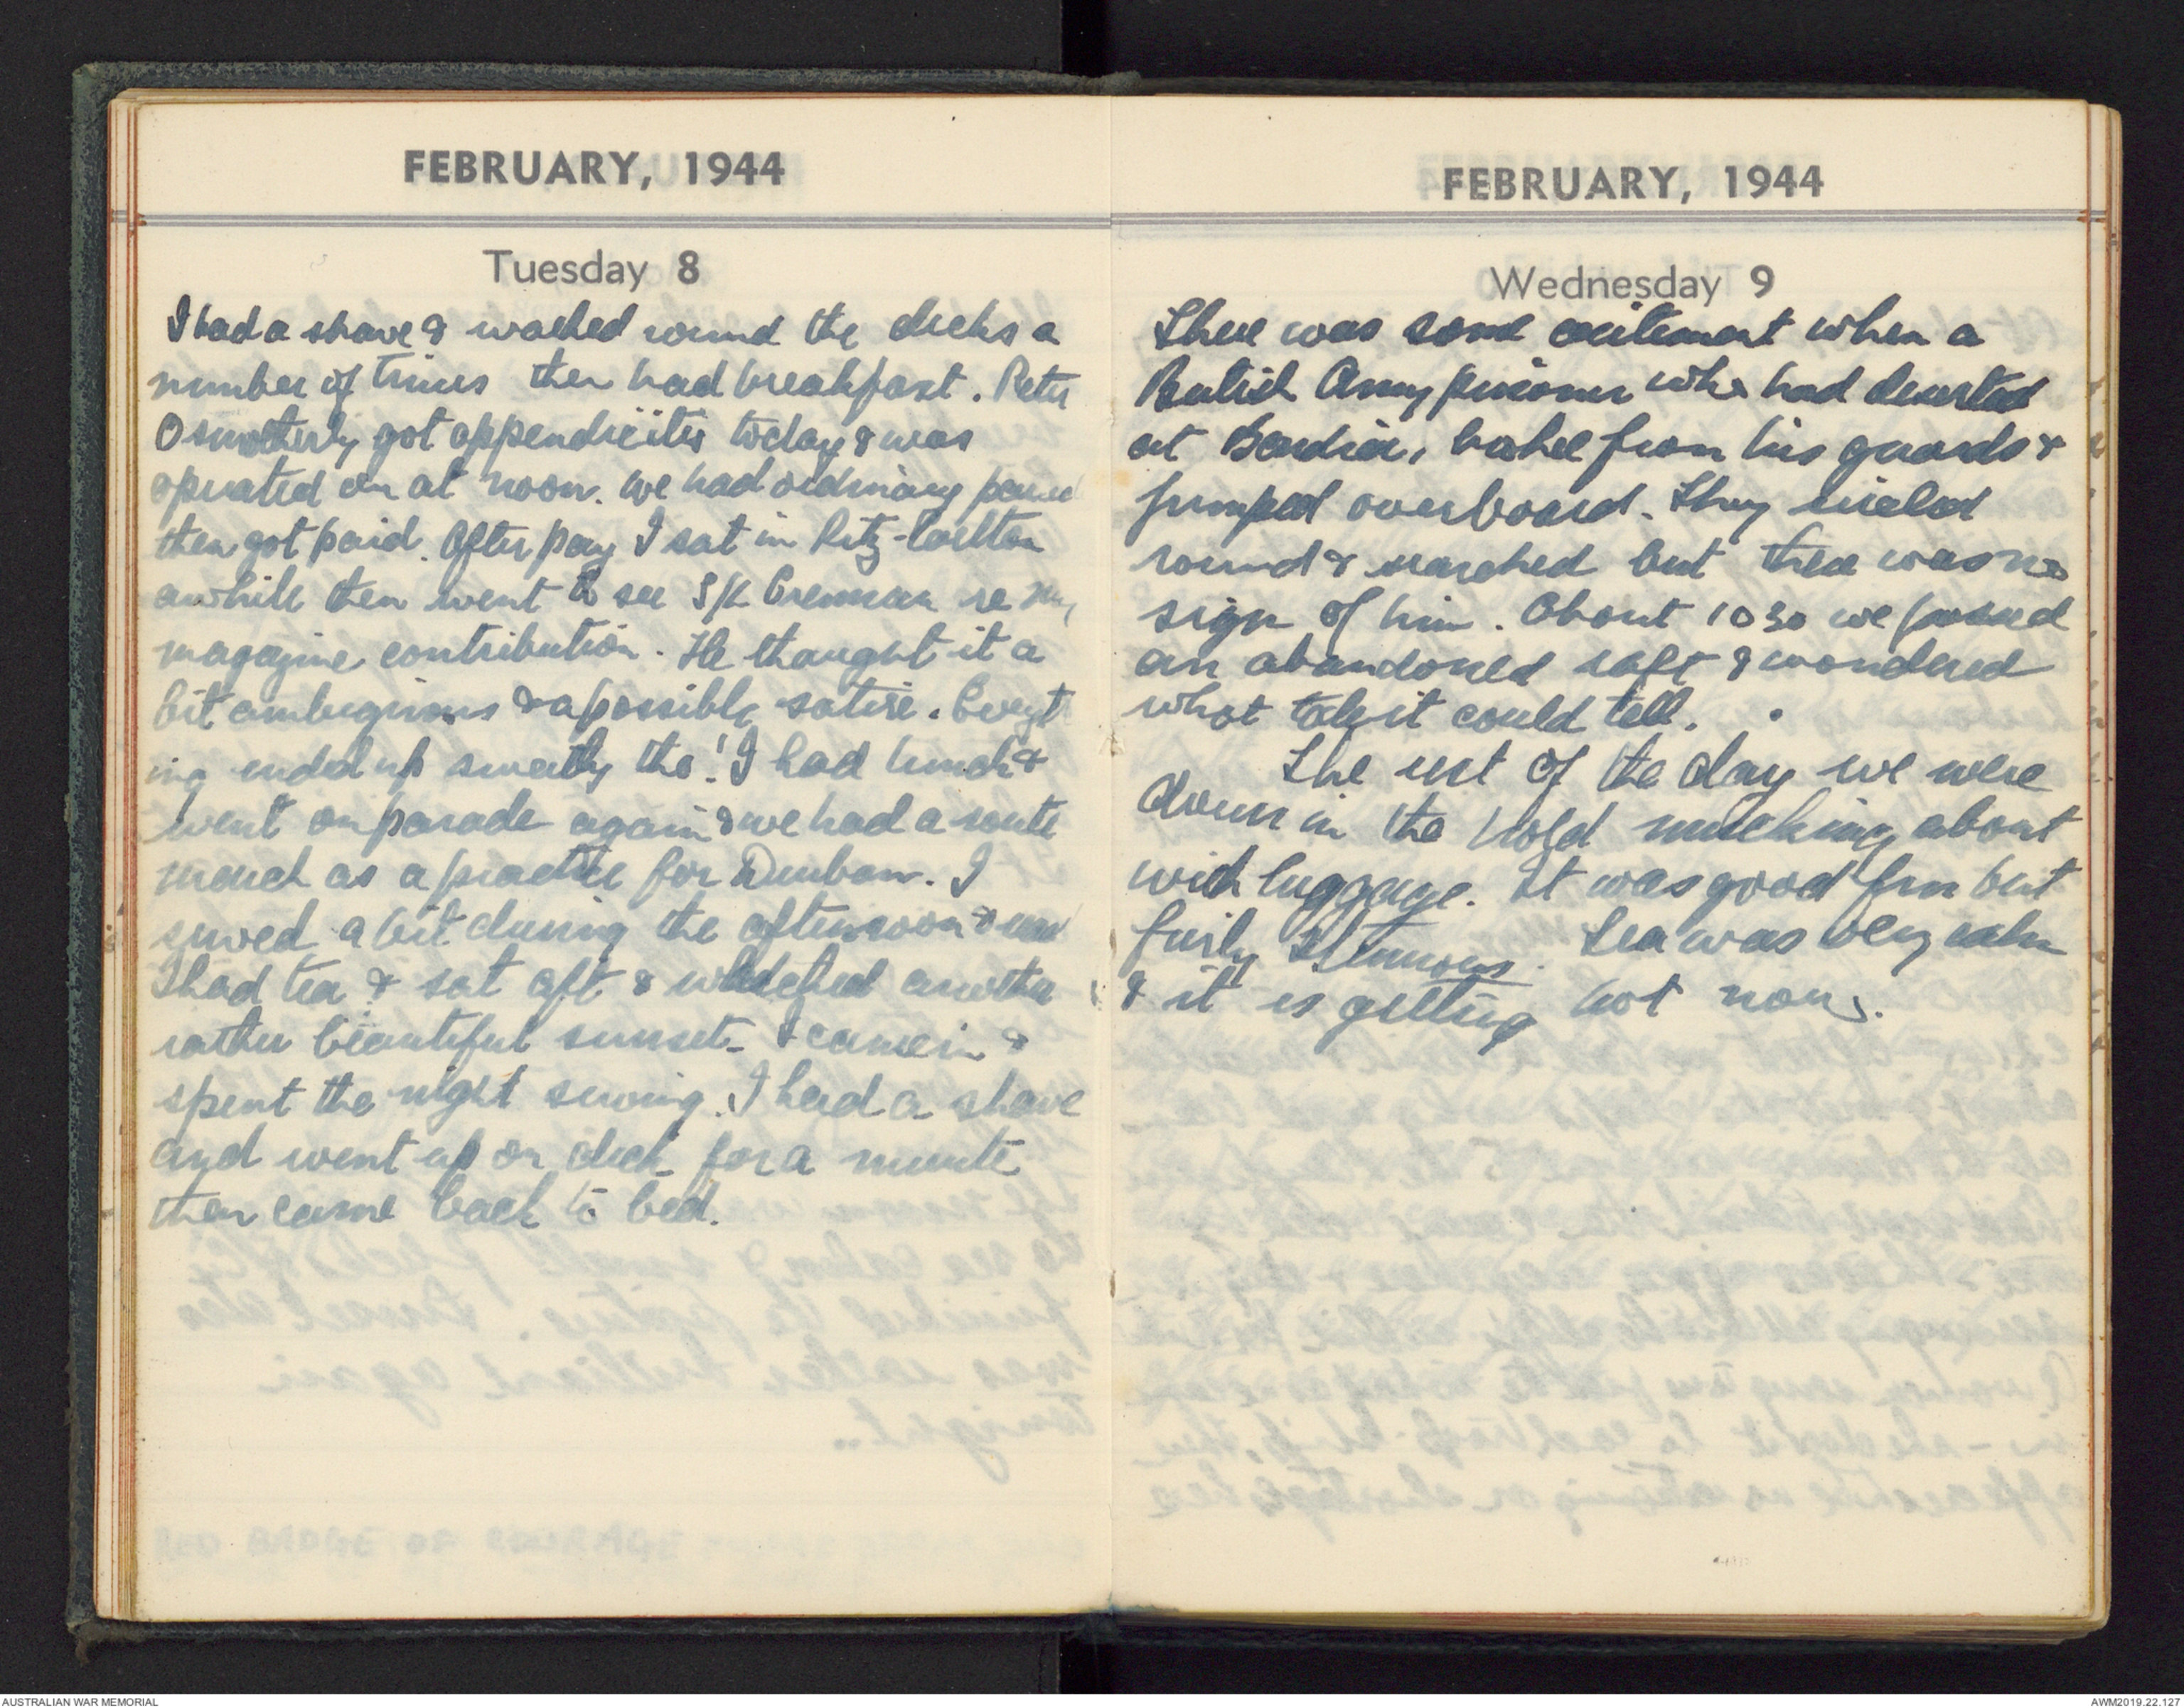 FEBRUARY, 1944
Tuesday 8
I had a shave & walked round the decks a
number of times then had breakfast. Peter
got appendicitis today & was
operated on at noon. We had ordinary parade
then got paid. After pay I sat in Ritz-Carlton
awhile then went to see S/L re my
magazine contribution. He thought it a
bit ambiguous & a possible satire. Everyt
ing ended up sweetly tho'! I had lunch &
went on parade again & we had a route
march as a practice for Durban. I
sewed a bit during the afternoon &
I had tea & sat aft & watched another
rather beautiful sunset & came in &
spent the night sewing. I had a shave
and went up on deck for a minute
then came back to bed.
FEBRUARY, 1944
Wednesday 9
There was some excitement when a
British Army prisoner who had deserted
at broke from his guards &
jumped overboard. They circled
round & searched but there was no
sign of him. About 1030 we passed
an abandoned raft & wondered
what tale it could tell.
The rest of the day we were
down in the hold mucking about
with luggage. It was good fun but
fairly strenuous. Sea was very calm
& it is getting hot now.
AUSTRALIAN WAR MEMORIAL
AWM2019.22.127